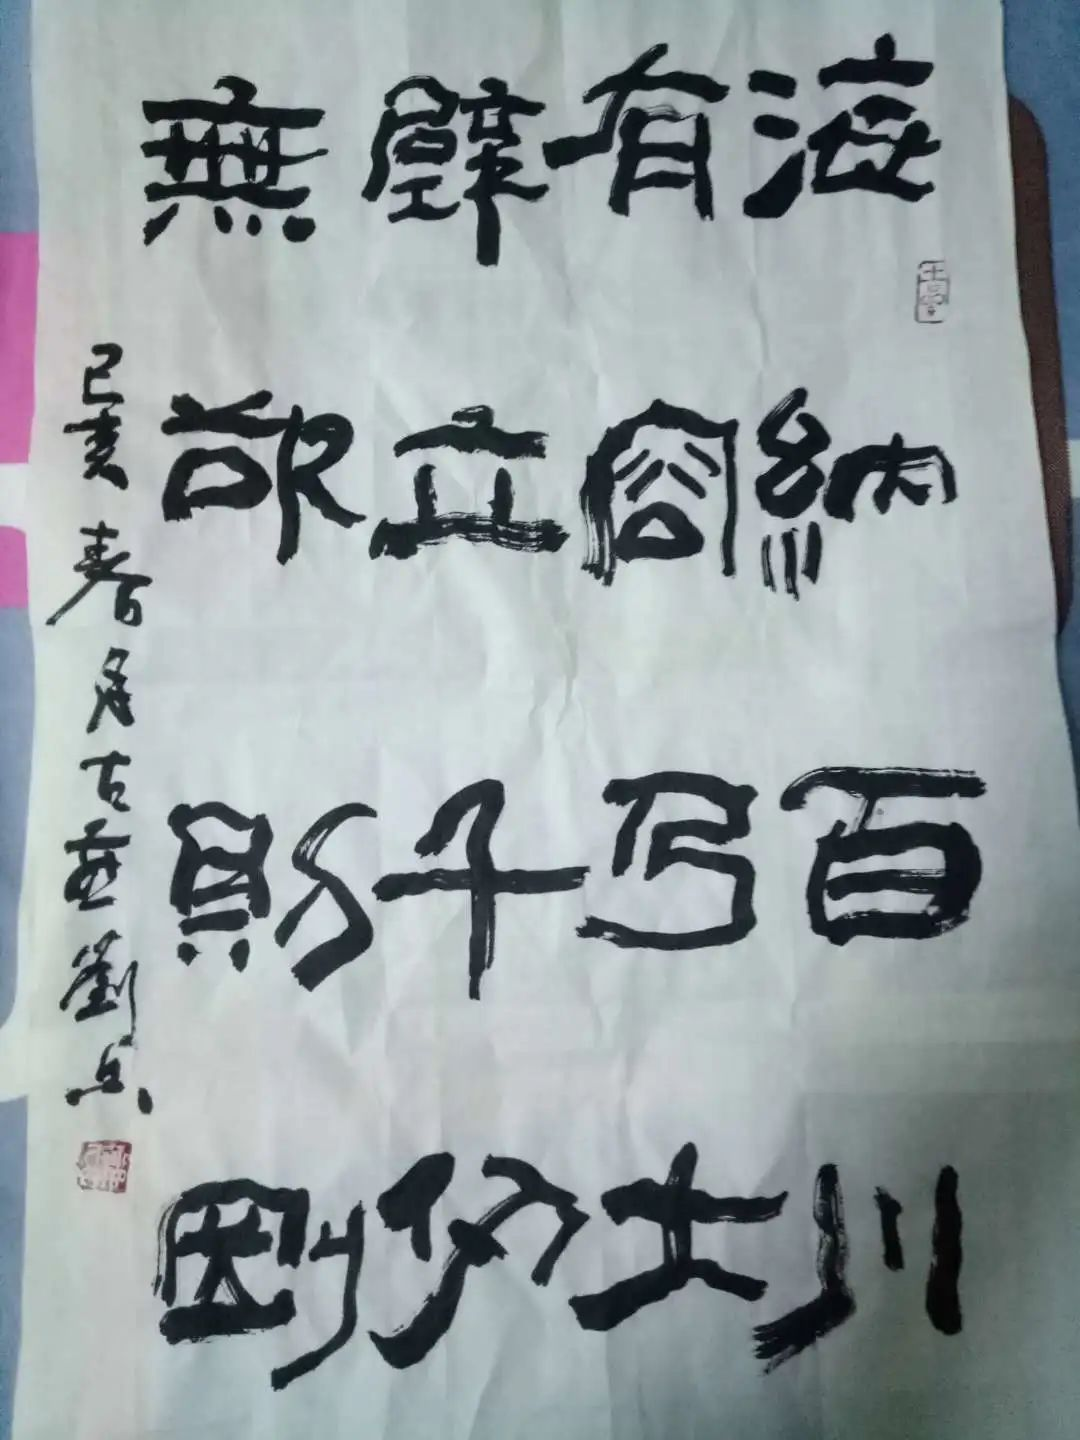 海納百川
有容乃大
壁立千仞
無欲則剛
己亥春古燕劉兵